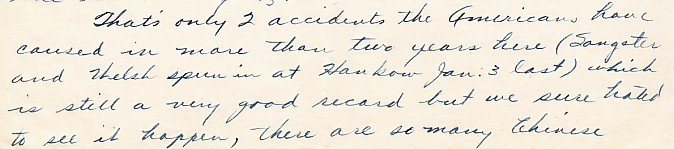 That's only 2 accidents the Americans have
caused in more than two years here (Sangster
and Welsh spun in at Hankow Jan. 3 last) which
is still a very good record but we sure hated
to see it happen, there are so many Chinese